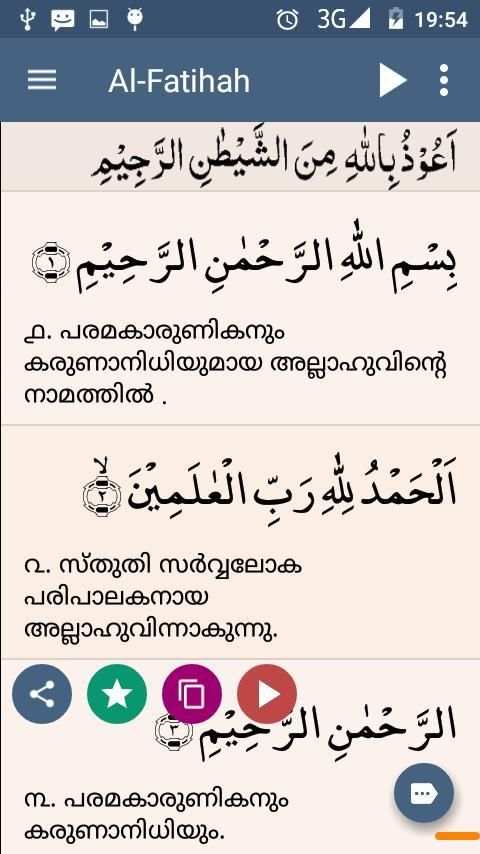 3G 19:54
Al-Fatihah
اَعُوْذُ بِاللّٰهِ مِنَ الشَّيْطٰنِ الرَّجِيْمِ
بِسْمِ اللّٰهِ الرَّحْمٰنِ الرَّحِيْمِ ١
൧. പരമകാരുണികനും
കരുണാനിധിയുമായ അല്ലാഹുവിന്റെ
നാമത്തിൽ .
اَلْحَمْدُ لِلّٰهِ رَبِّ الْعٰلَمِيْنَ ۙ ٢
൨. സ്തുതി സർവ്വലോക
പരിപാലകനായ
അല്ലാഹുവിന്നാകുന്നു.
الرَّحْمٰنِ الرَّحِيْمِ ٣
൩. പരമകാരുണികനും
കരുണാനിധിയും.